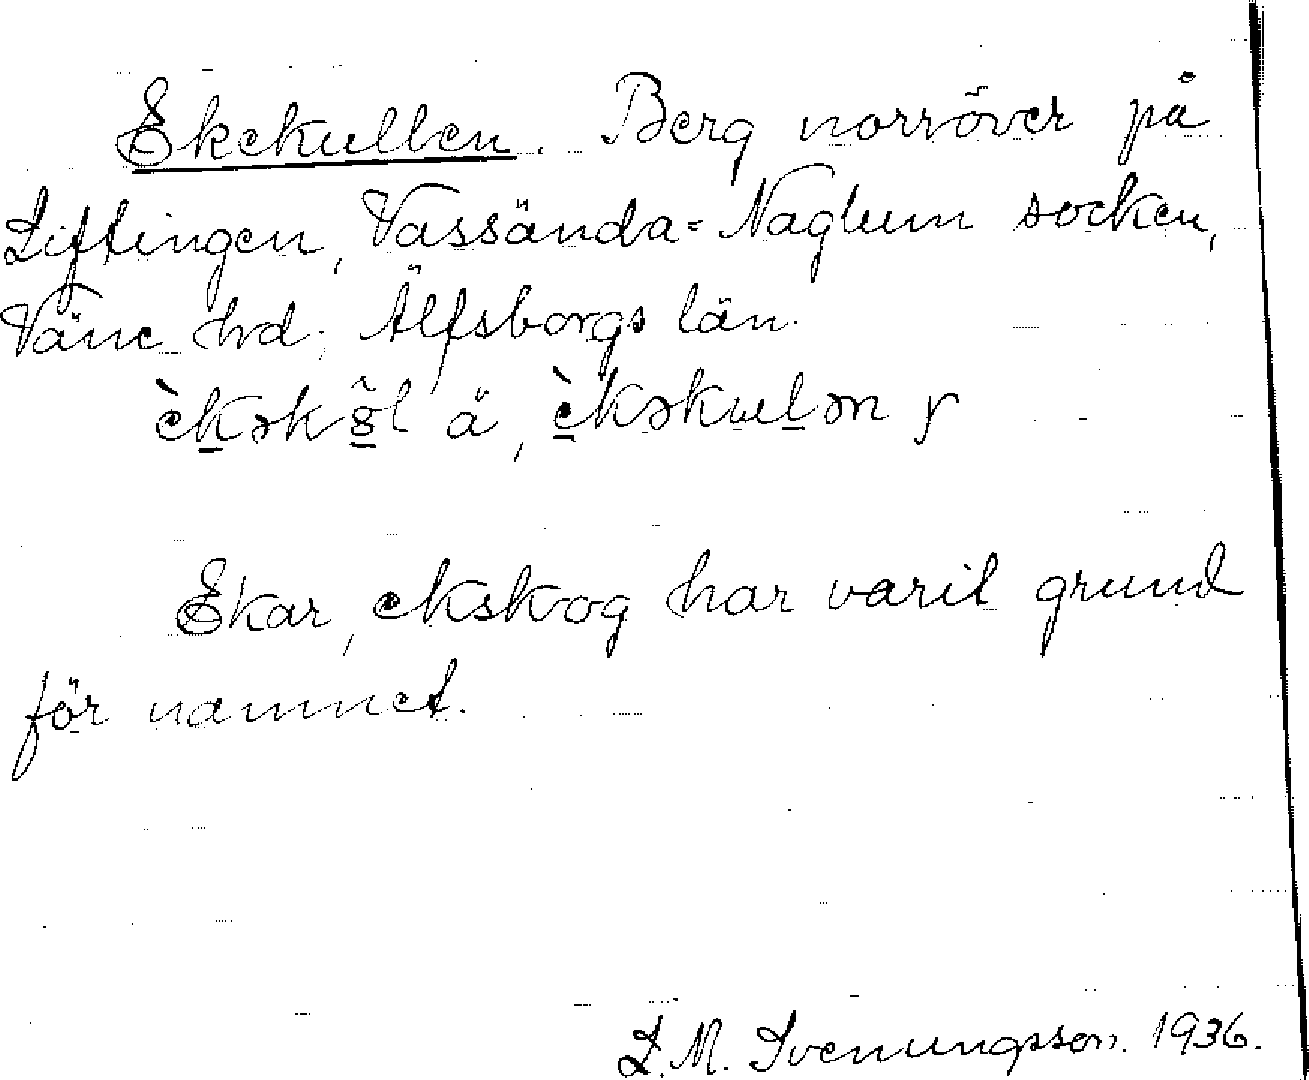 Ekekullen. Berg norröver på
Liftingen, Vassända-Naglum socken,
Väne hrd, Älfsborgs län.
ä̀
Ekar, ekskog har varit grund
för namnet.
L. M. Svenungsson. 1936.